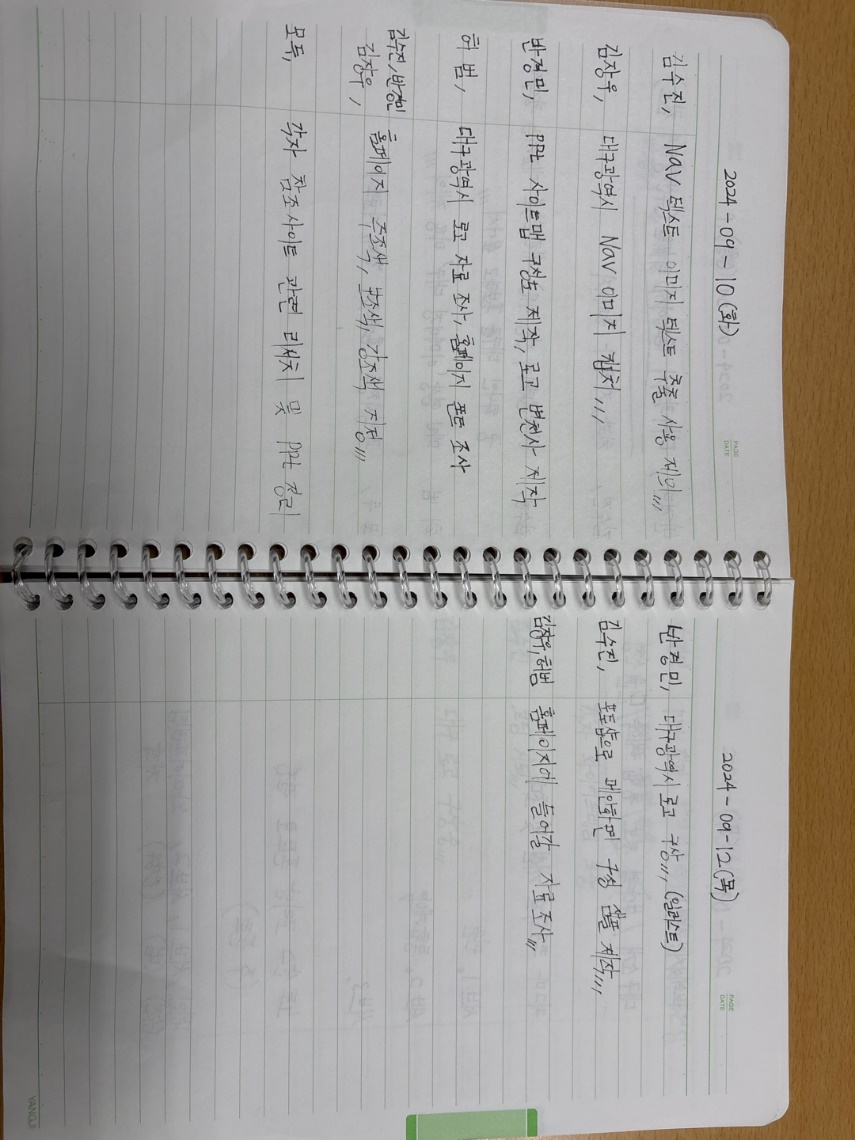 2024-09-10(화)
PAGE
DATE
김수진, Nav 텍스트 이미지 텍스트 추출 사용 제의,,,
김장우, 대구광역시 Nav 이미지 캡처,,,
반경민, PPt 사이트맵 구성도 제작, 로고 변천사 제작
허범, 대구광역시 로고 자료 조사, 홈페이지 폰트 조사
김수진, 반경민
김장우, 홈페이지 주조색, 보조색, 강조색 지정,,,
모두, 각자 참조사이트 관련 리서치 및 PPt 정리
2024-09-12(목)
PAGE
DATE
반경민, 대구광역시 로고 구상,,, (일러스트)
김수진, 포토샵으로 메인화면 구성 샘플 제작,,,
김장우, 허범 홈페이지에 들어갈 자료 조사,,,